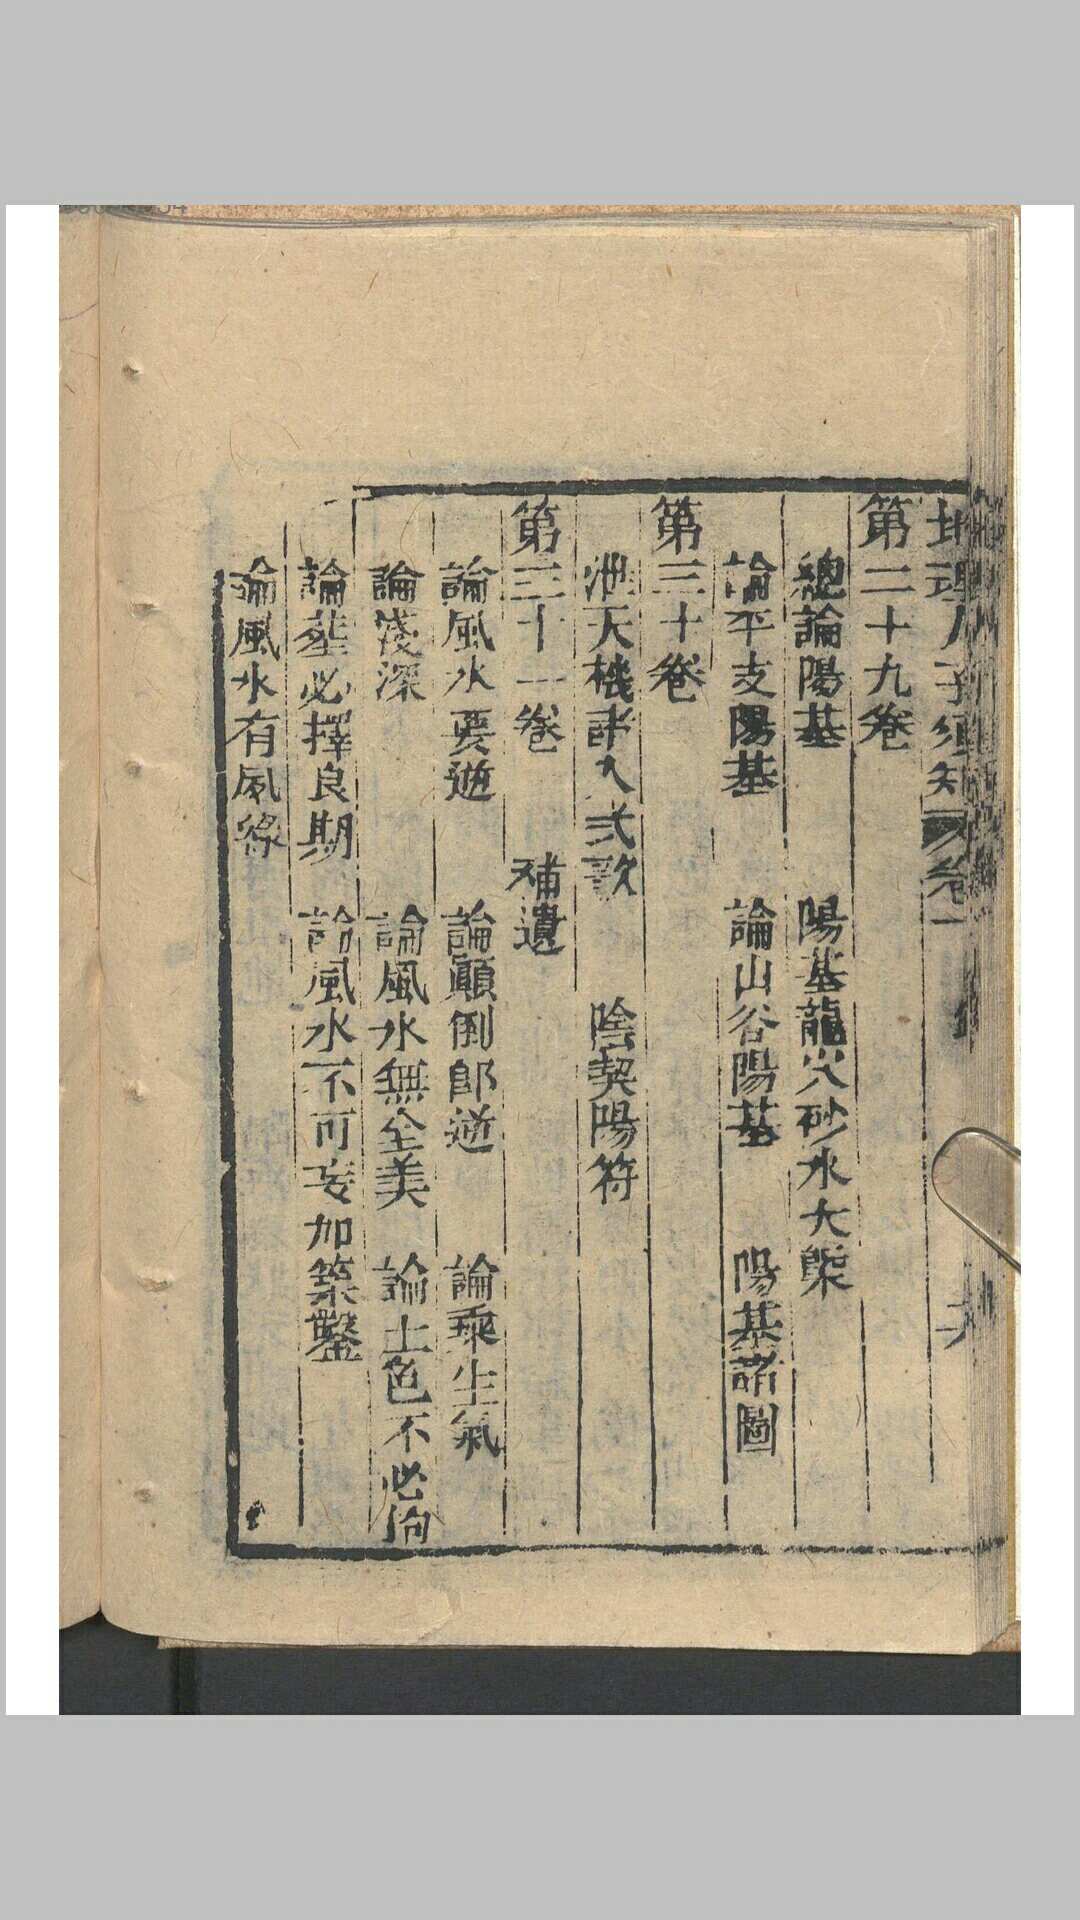 地理人子須知 卷一
第二十九卷
總論陽基 陽基龍穴砂水大槩
論平支陽基 論山谷陽基 陽基諸圖
第三十卷
泄天機訣入式歌 陰契陽符
第三十一卷 補遺
論風水要遊 論顛倒郎逆 論乘生氣
論淺深 論風水無全美 論土色不必拘
論塟必擇良期 論風水不可妄加築鑿
論風水有夙緣